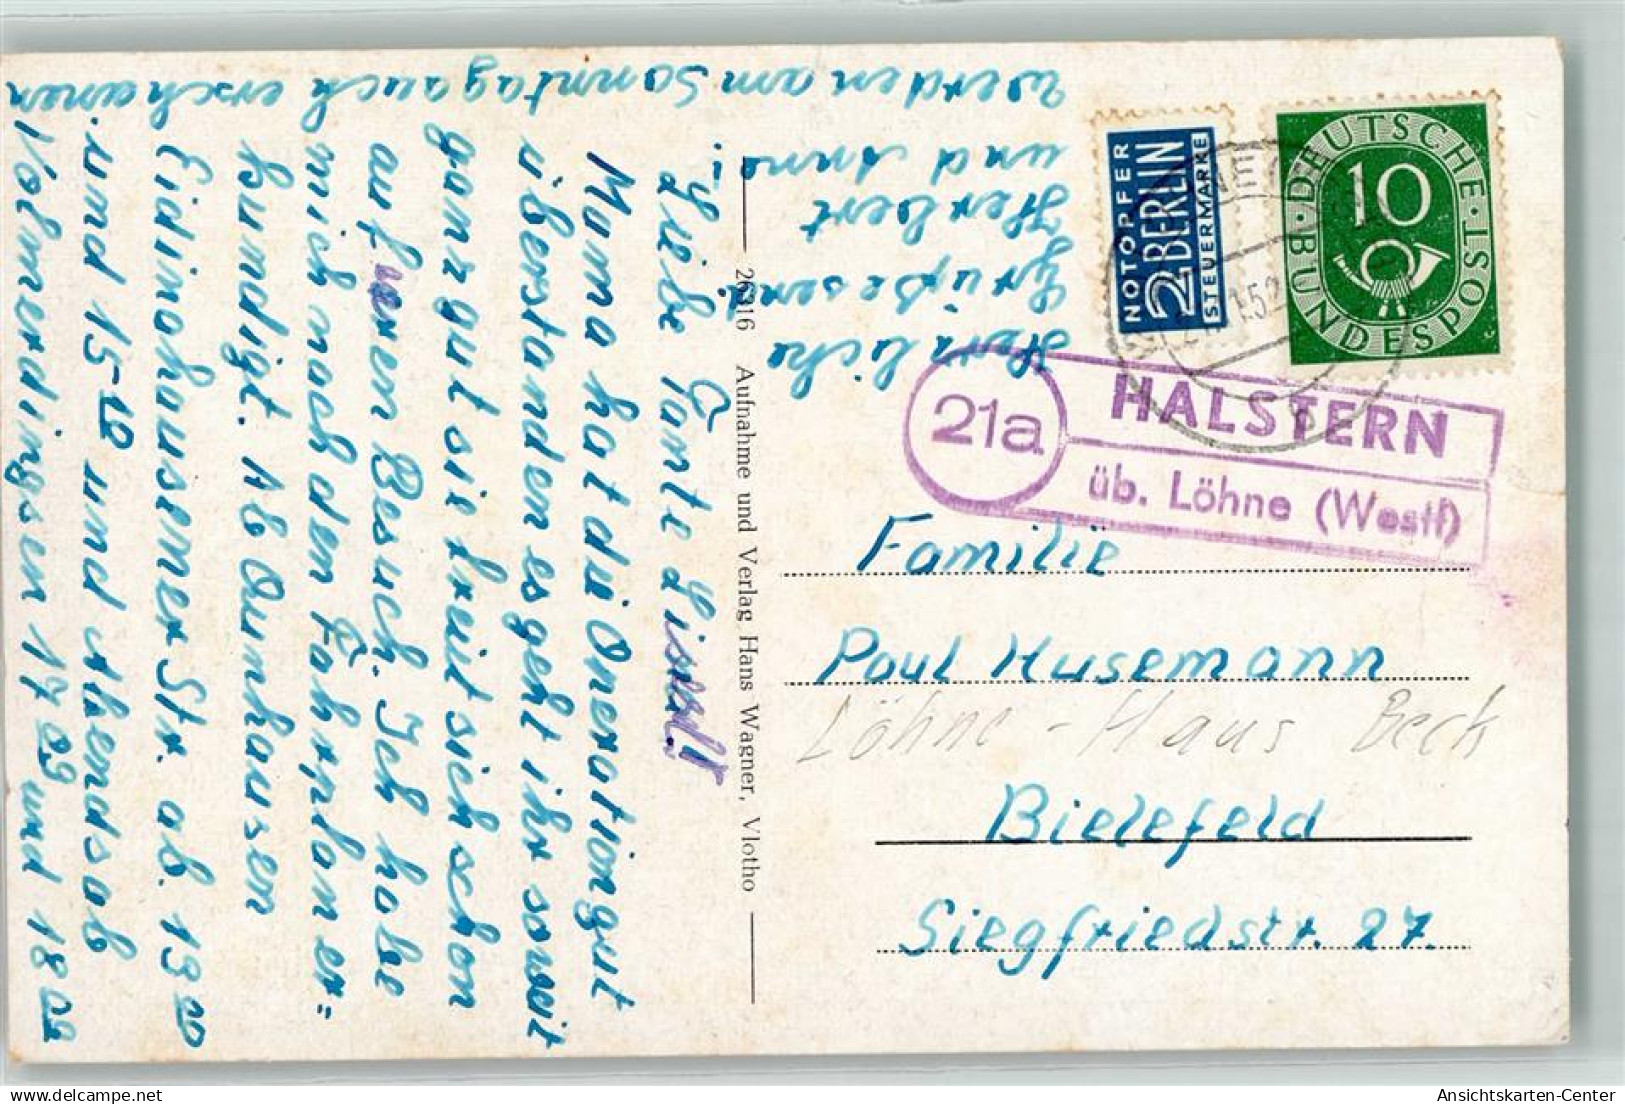 Liebe Tante Liesel!
Muma hat die Operation gut
überstanden es geht ihr soweit
ganz gut sie freut sich schon
auf euren Besuch. Ich habe
mich nach den Fahrplan er=
kundigt. Ab Oeynhausen
Eidinghausener Str. ab. 13 00
und 15-10 und Abends ab
Volmerdingsen 17 09 und 18 09
werden am Sonntag auch erscheinen
und Anni
Herbert
Grüße send
Herzliche
26316 Aufnahme und Verlag Hans Wagner, Vlotho
NOTOPFER
2 BERLIN
STEUERMARKE
DEUTSCHE BUNDESPOST
10
21a
HALSTERN
üb. Löhne (Westf)
Familie
Paul Husemann
Löhne - Haus Beck
Bielefeld
Siegfriedstr. 27.
Ansichtskarten-Center